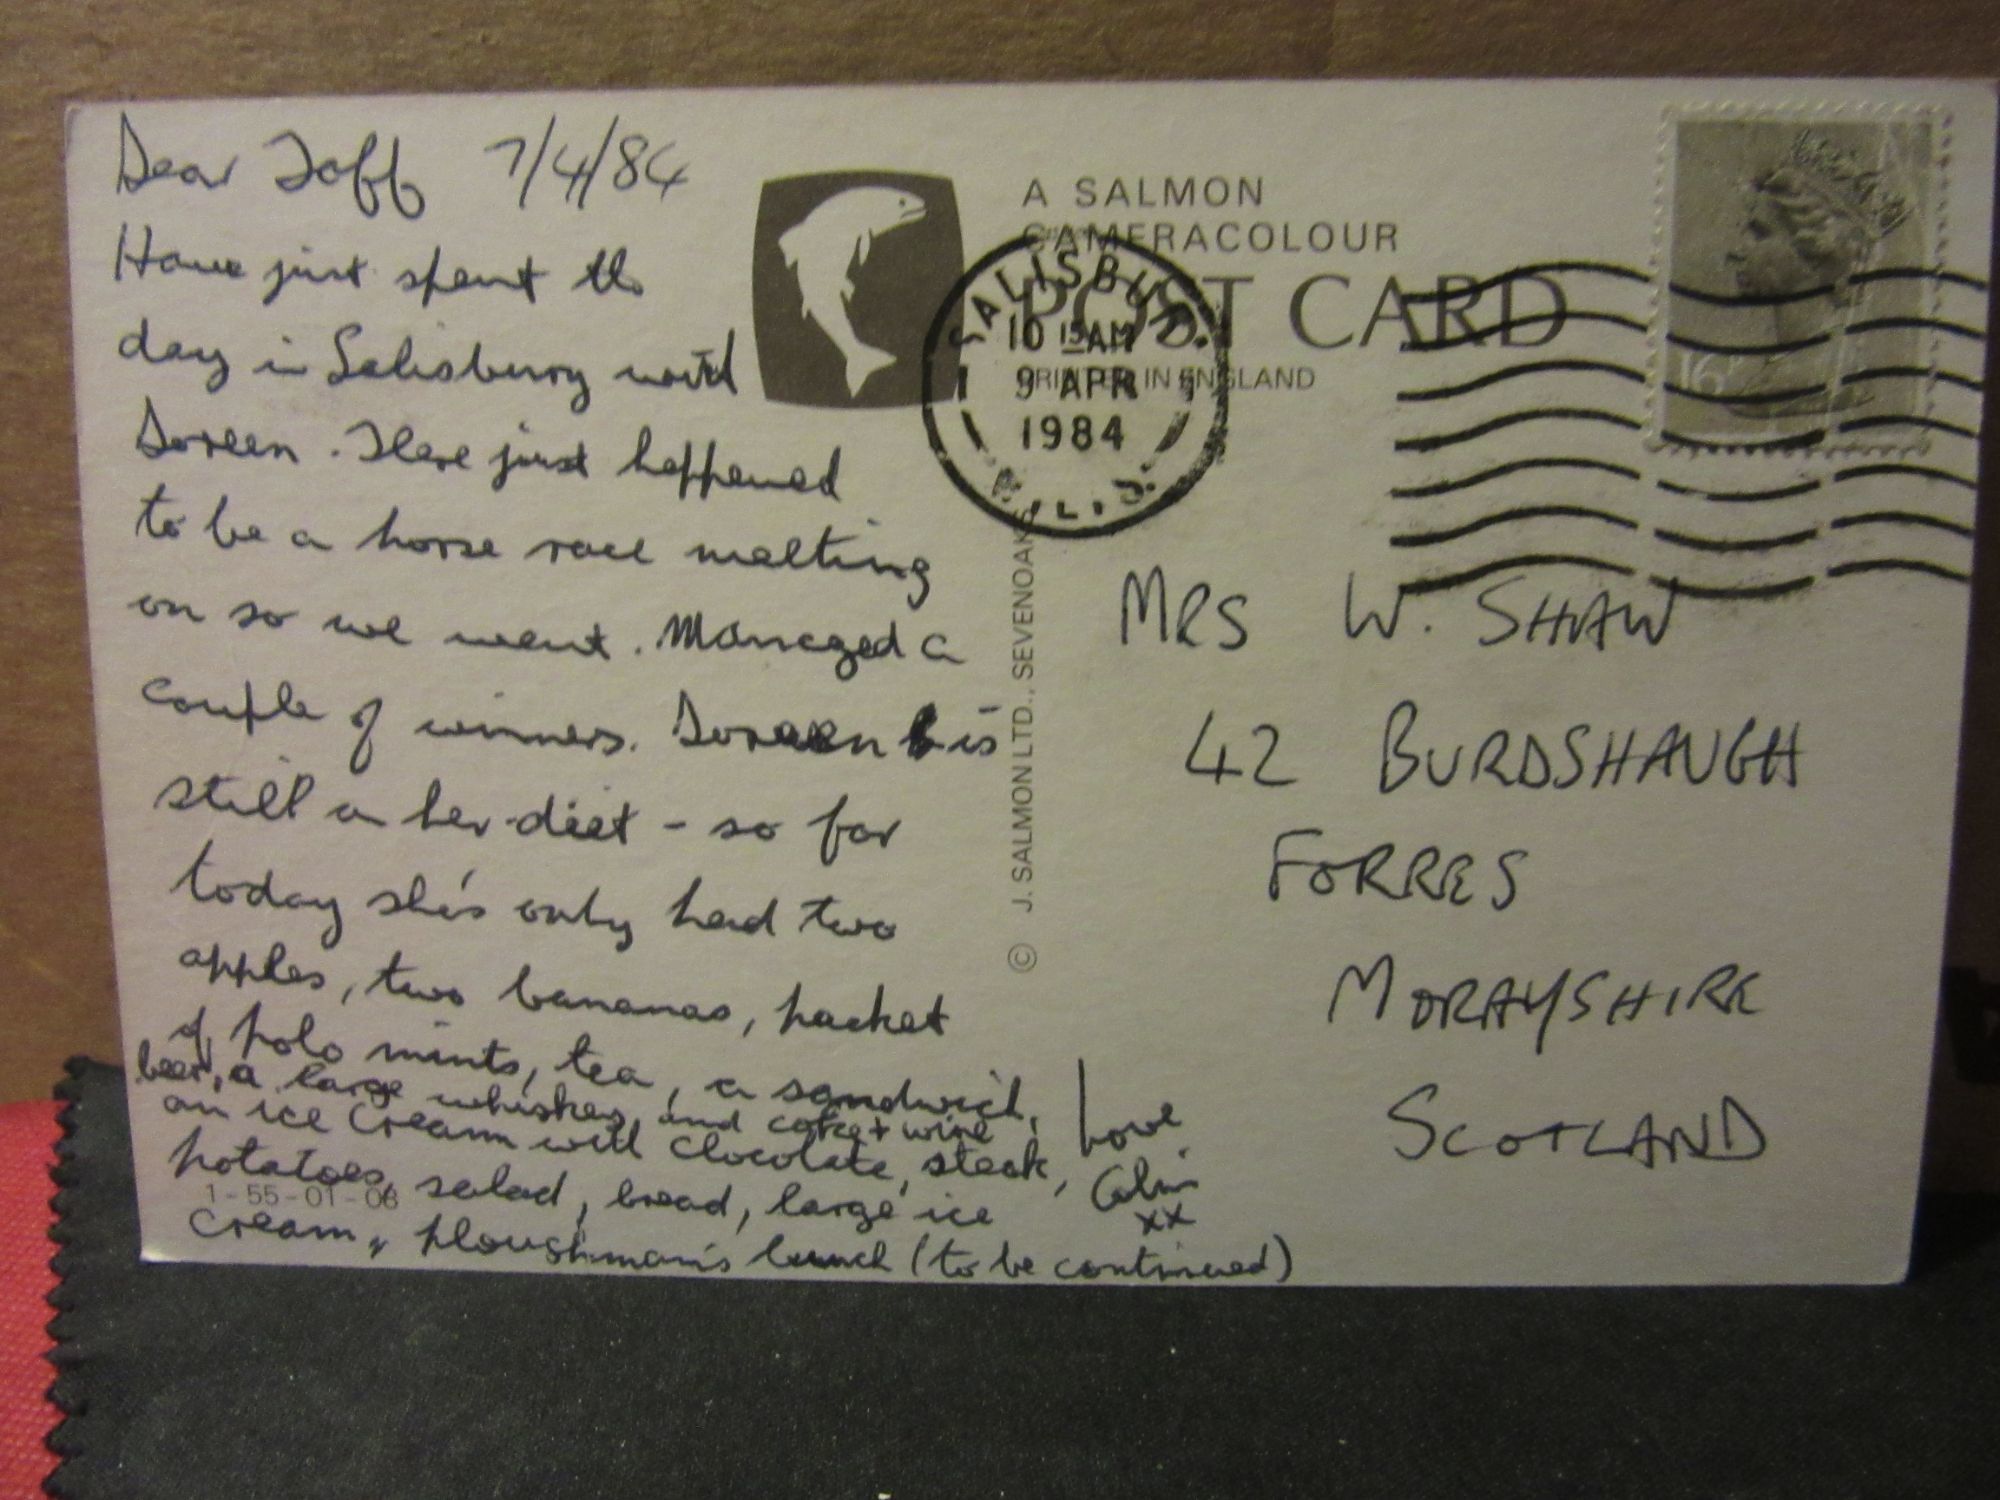 Dear Toff 7/4/84
Have just spent the
day in Salisbury with
Doreen. There just happened
to be a horse race melting
on so we went. Managed a
couple of winners. Doreen is
still on her diet - so far
today she's only had two
apples, two bananas, packet
of polo mints, tea, a sandwich,
beer, a large whiskey and coke + wine
an ice cream with chocolate, steak,
potatoes, salad, bread, large ice
cream, ploughman's lunch (to be continued)
Love
Colin
xx
1-55-01-06
A SALMON
CAMERACOLOUR
POST CARD
PRINTED IN ENGLAND
SALISBURY
10 15 AM
9 APR
1984
WILTS.
16
© J. SALMON LTD., SEVENOAKS
MRS W. SHAW
42 BURDSHAUGH
FORRES
MORAYSHIRE
SCOTLAND